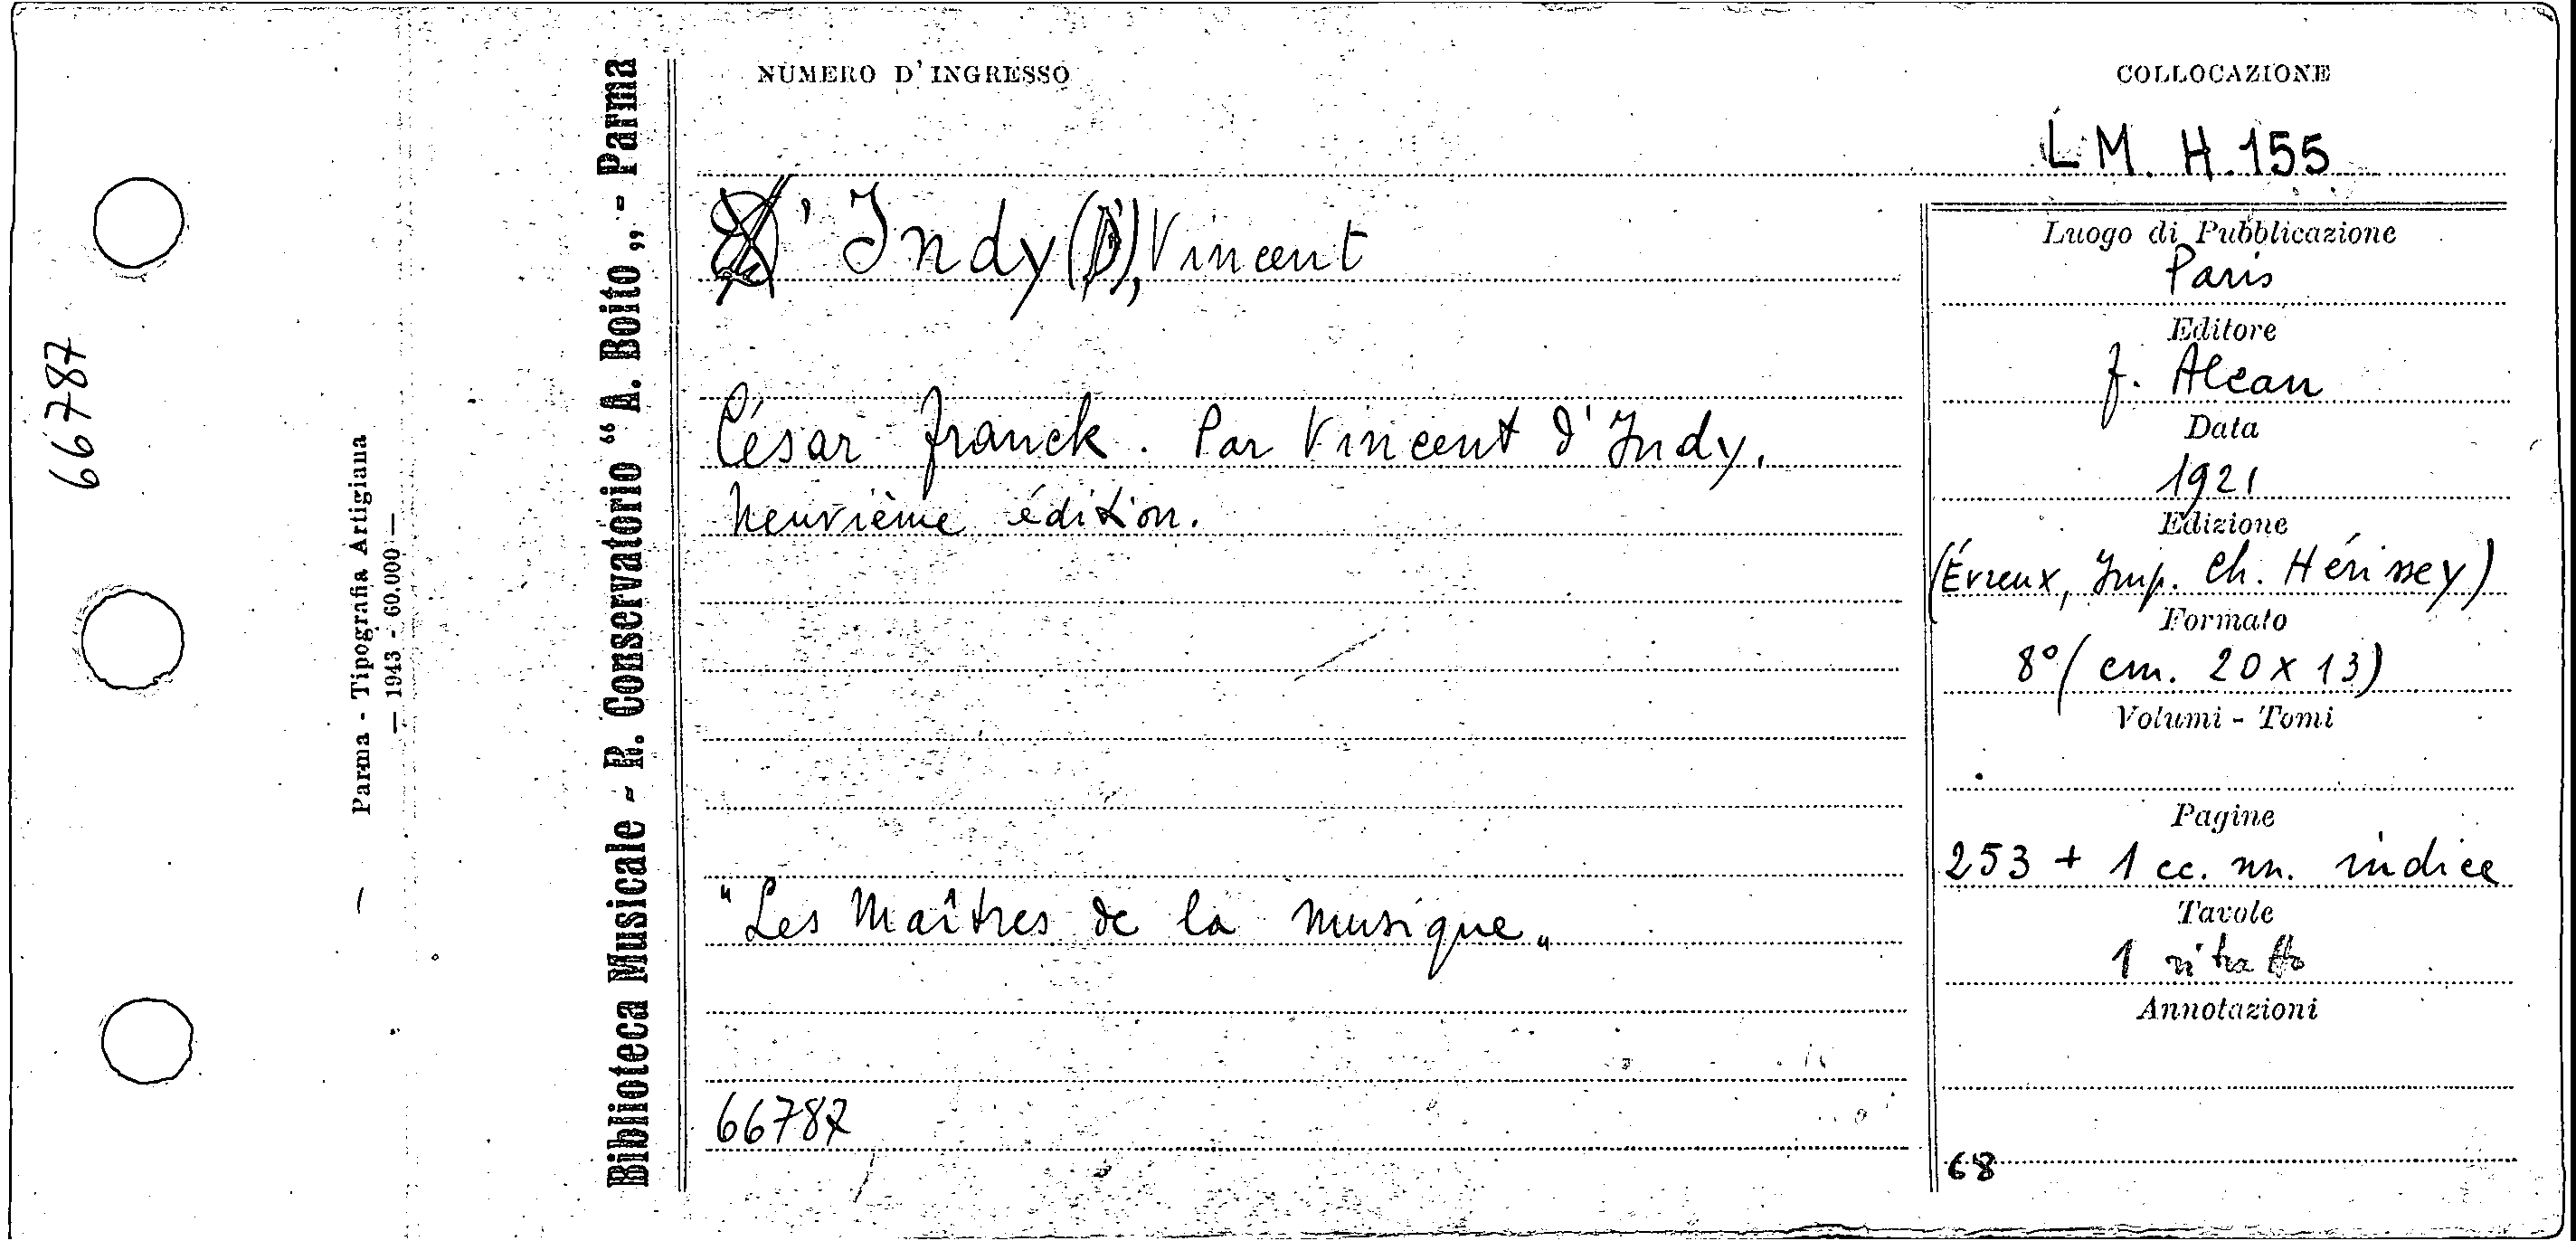 66787
Parma - Tipografia Artigiana
— 1943 - 60.000 —
Biblioteca Musicale - R. Conservatorio “A. Boito„ - Parma
NUMERO D'INGRESSO
COLLOCAZIONE
L M. H. 155
'Indy (D'), Vincent
César Franck. Par Vincent d'Indy.
Neuvième édition.
"Les Maîtres de la musique„
66787
Luogo di Pubblicazione
Paris
Editore
F. Alcan
Data
1921
Edizione
(Évreux, Imp. Ch. Hérissey)
Formato
8° (cm. 20 x 13)
Volumi - Tomi
Pagine
253 + 1 cc. nn. indice
Tavole
1 ritratto
Annotazioni
68